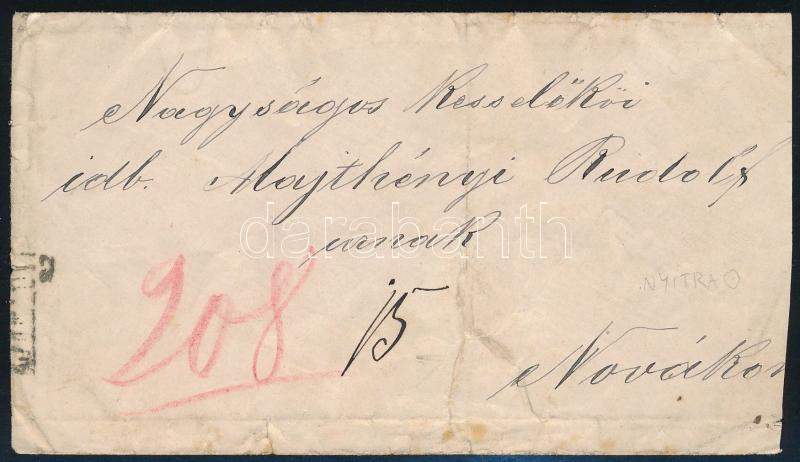 Nagyságos Kesselőkői
idb. Majthényi Rudolf
urnak
darabanth
208
15
NYITRA
Novákon